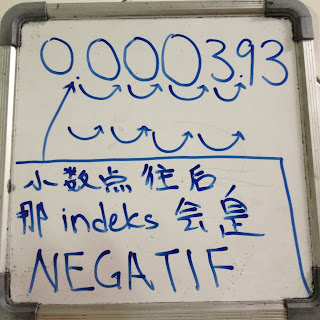 0.0003.93
小数点往后
那 indeks 会是
NEGATIF